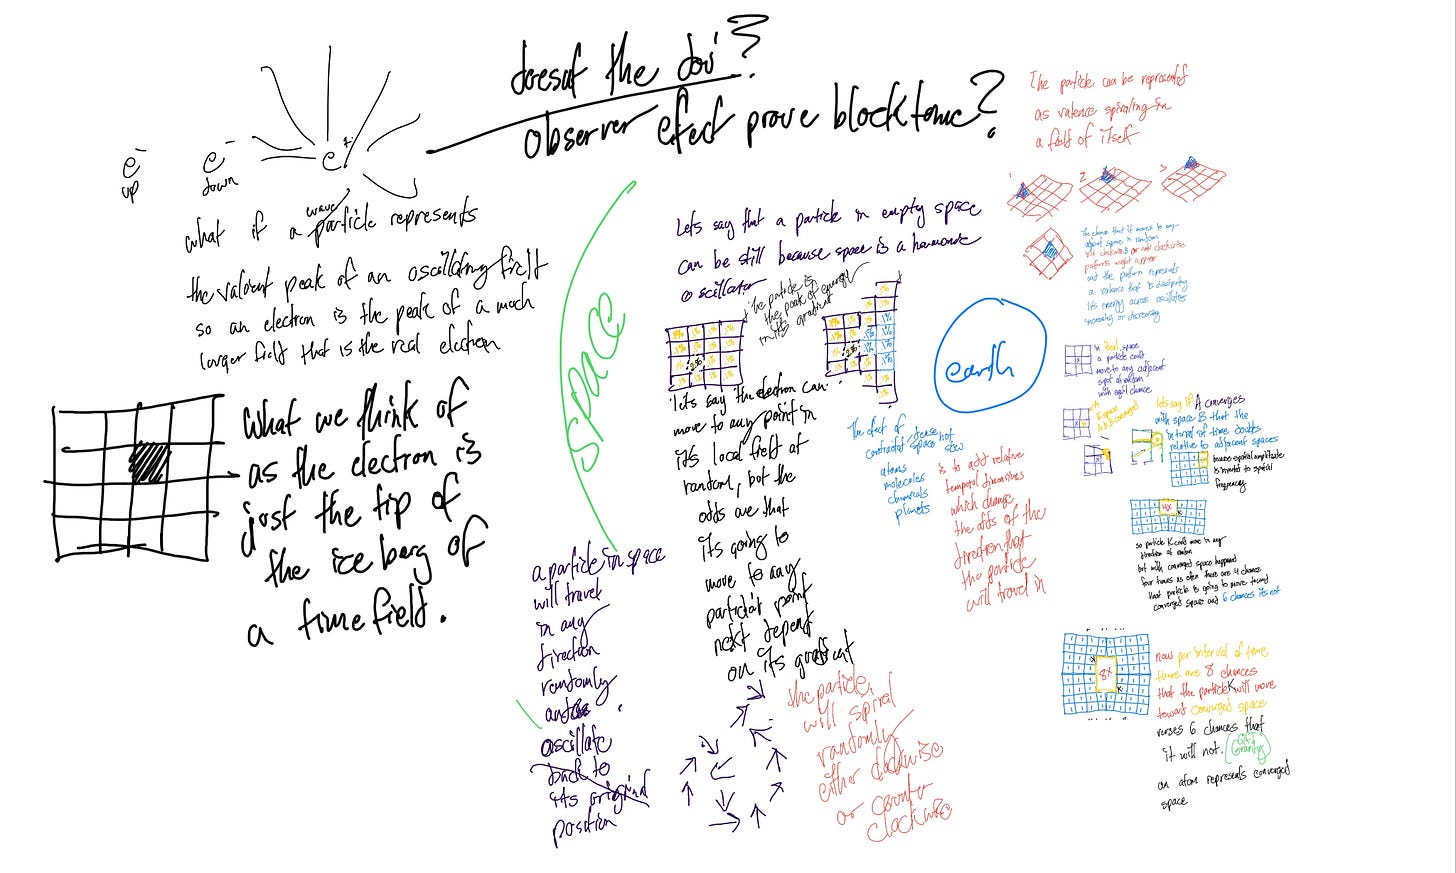 doesnt the
observer efect prove blocktonic?
e-
up
e-
down
e+
what if a particle represents
wave
the valent peak of an oscillating field
so an electron is the peak of a much
larger field that is the real electron
What we think of
as the electron is
just the tip of
the ice berg of
a time field.
space
Lets say that a particle in empty space
can be still because space is a harmonic
oscillator
the particle is
the peak of energy
in its gradient
lets say the electron can
move to any point in
its local field at
random, but the
odds are that
its going to
move to any
particular point
next depent
on its gradient
a particle in space
will travel
in any
direction
randomly
oscillate
back to
its original
position
the particle
will spiral
randomly
either clockwise
or counter
clockwise
earth
The efect of
contracted space
atoms
molecules
chemicals
planets
is to add relative
temporal dimensions
which change
the odds of the
direction that
the particle
will travel in
The particle can be represented
as valence spiraling in
a field of itself
1
2
3
The chance that it moves to any
adjacent space is random
but clockwise or anti clockwise
patterns might appear
and the pattern represents
a valence that is dissipating
its energy across oscillations
increasing or decreasing
in ideal space
a particle could
move to any adjacent
spot at random
with equal chance
A
lets say if A converges
with space B that the
interval of time doubles
relative to adjacent spaces
because spatial amplitude
is inverted to spatial
frequency
4x
K
so particle K could move in any
direction at random
but with converged space happening
four times as often there are 4 chances
that particle is going to move toward
converged space and 6 chances its not
8x
K
now per interval of time
there are 8 chances
that the particle K will move
toward converged space
verses 6 chances that
it will not.
Gravity
an atom represents converged
space